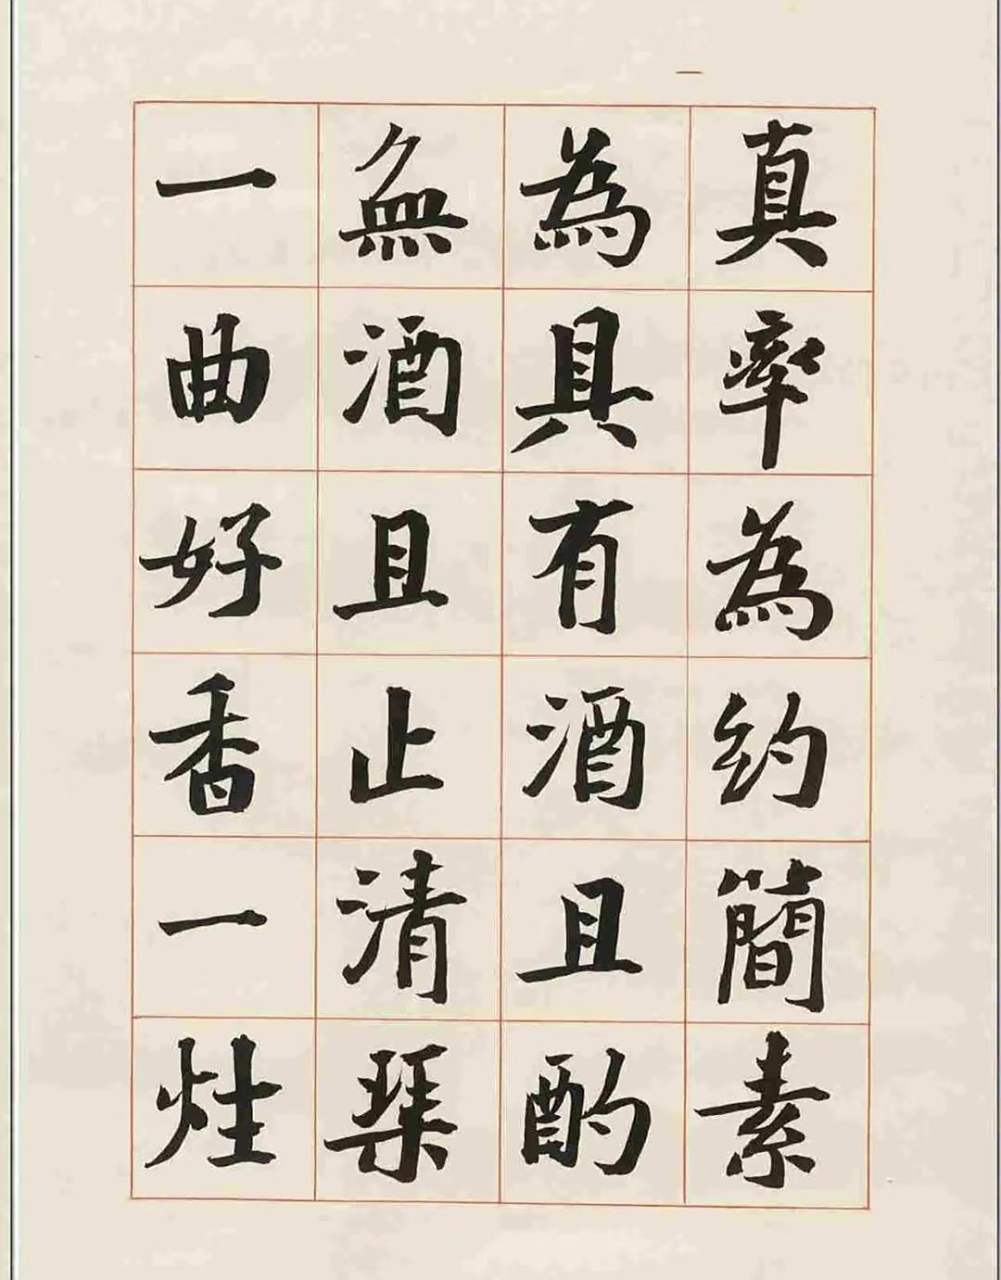 真率為約簡素
為具有酒且酌
無酒且止清琹
一曲好香一炷